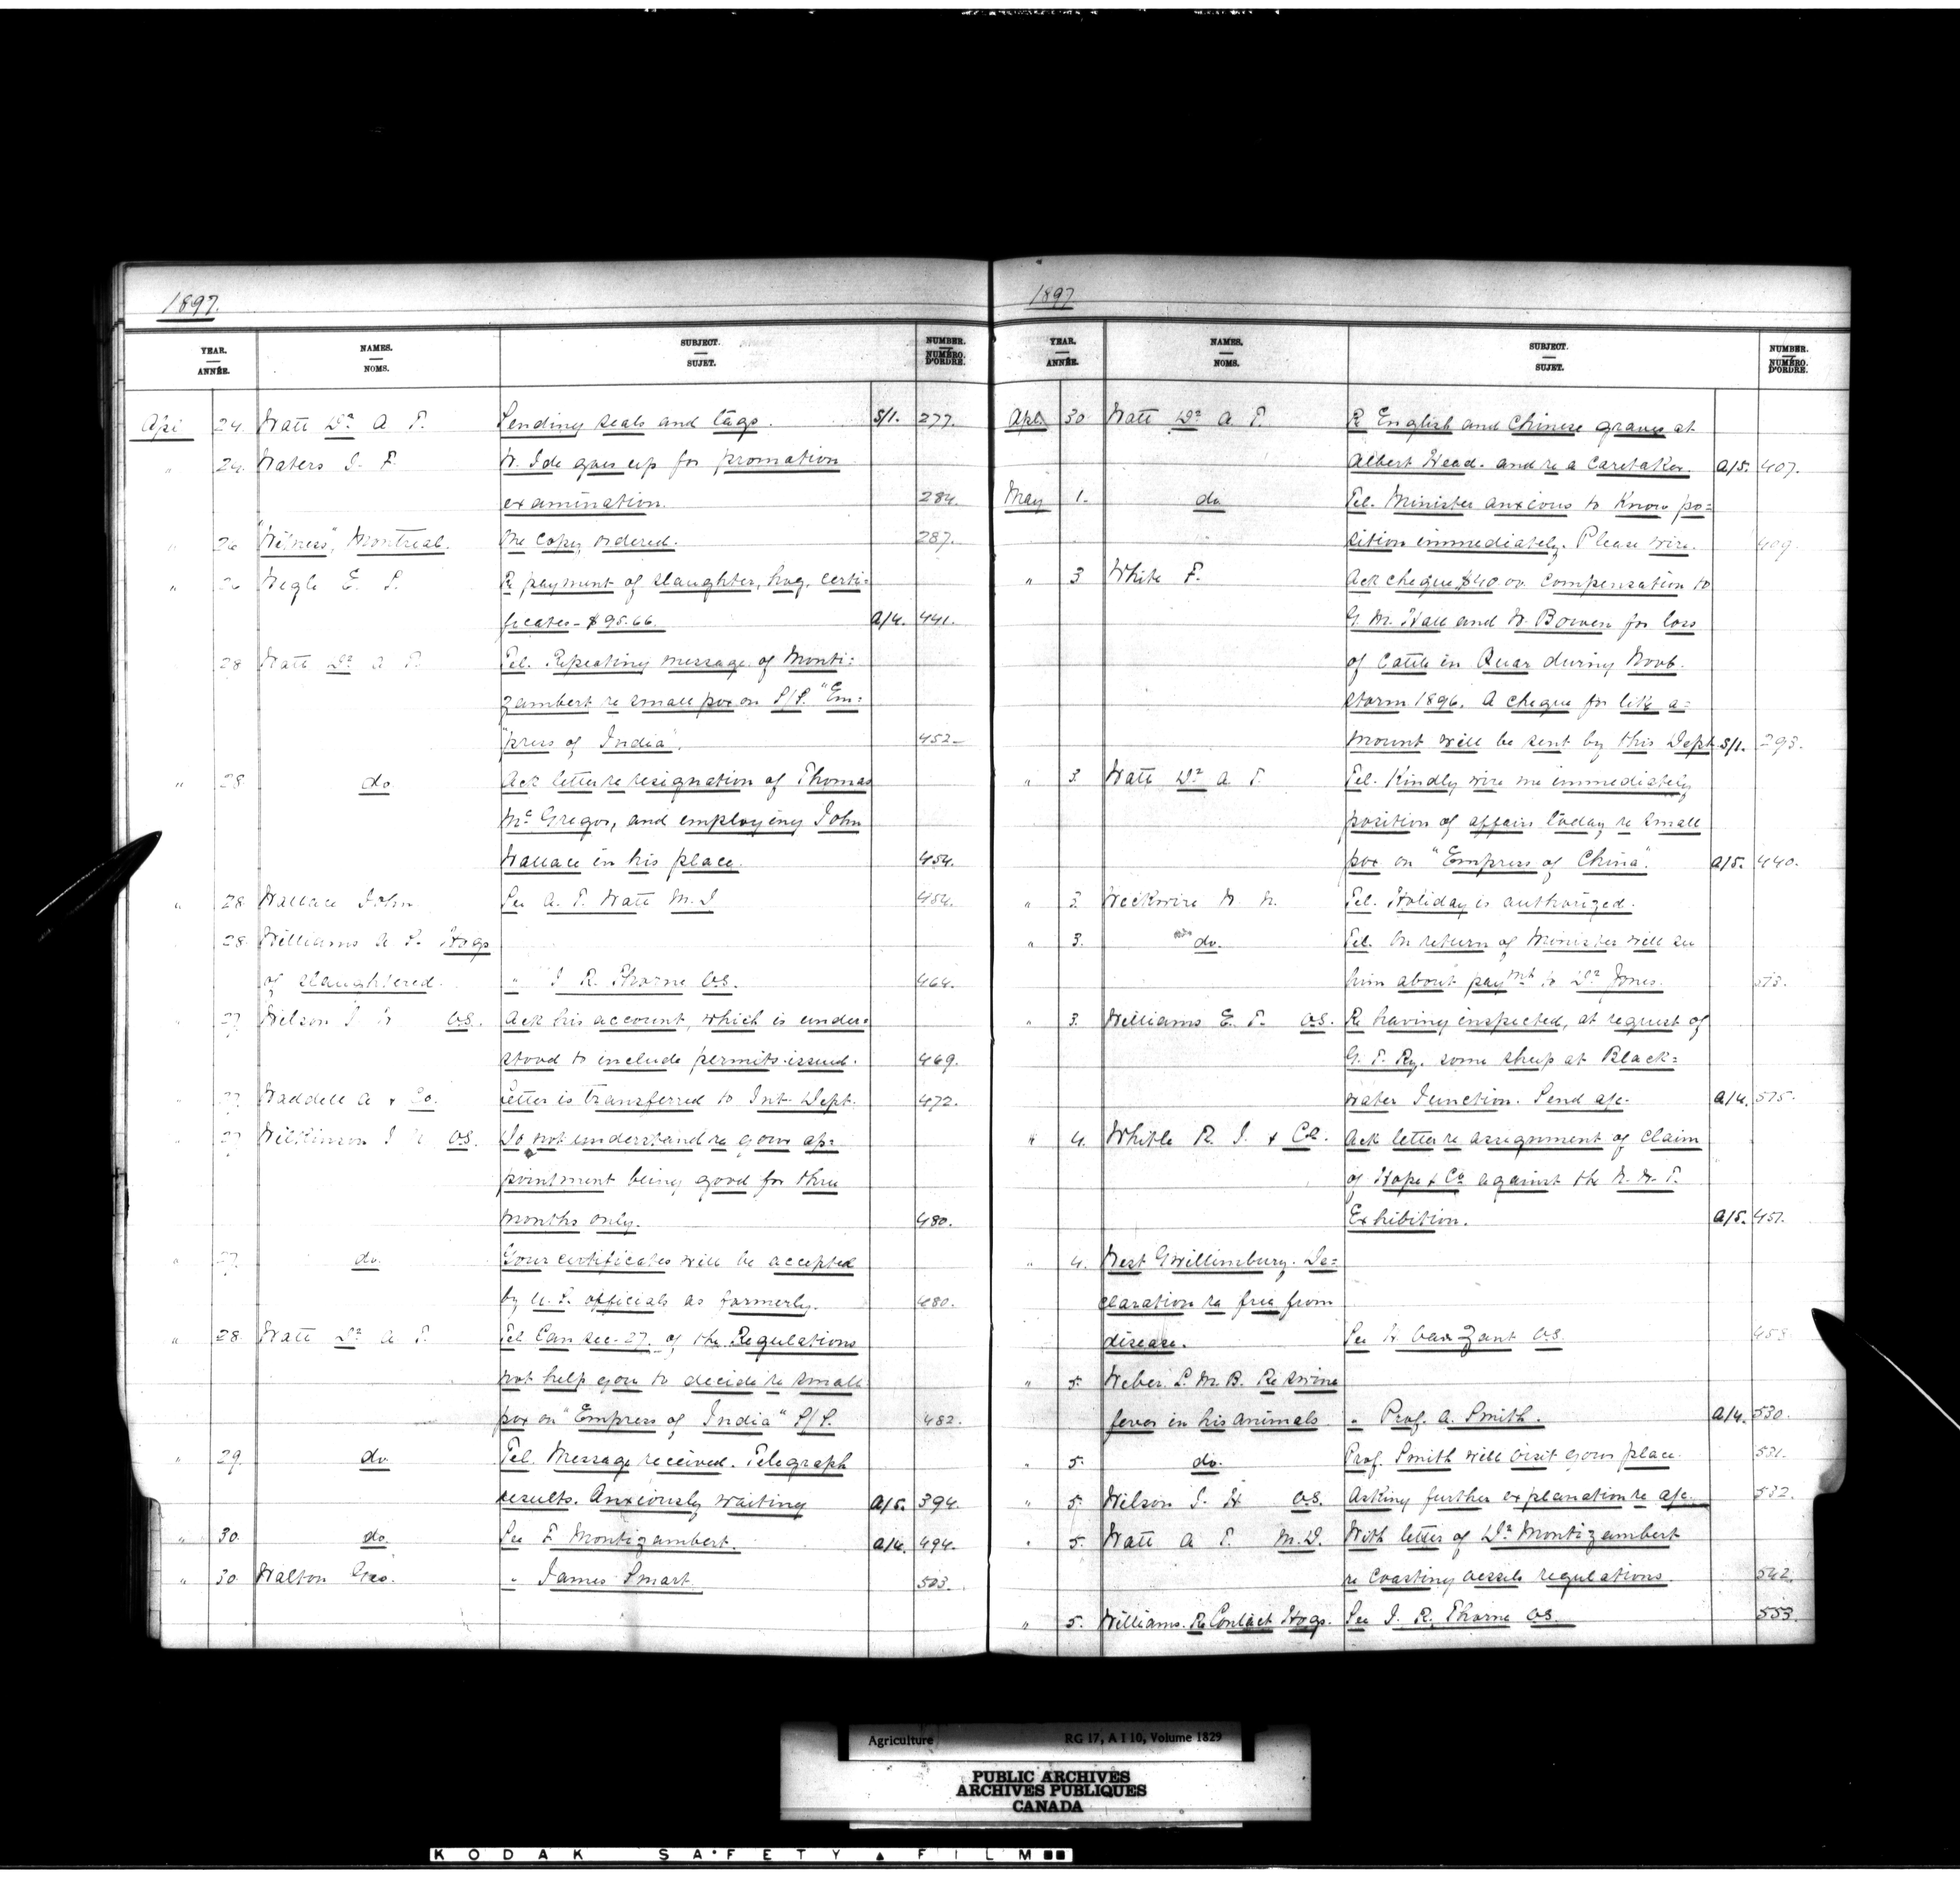 1897.
YEAR. ANNÉE. NAMES. NOMS. SUBJECT. SUJET. NUMBER. NUMÉRO. D'ORDRE.
Apl 24. Watt Dr A T. Sending seals and tags. S/1. 277.
" 24. Waters J. F. W. Ide goes up for promotion
examination. 284.
" 26 "Witness", Montreal. One copy ordered. 287.
" 26 Wegle E. S. Re payment of slaughter, hog, certi=
ficates - $95.66. A/4. 441.
28 Watt Dr A T. Tel. Repeating message of Monti=
zambert re small pox on S/S. "Em=
"press of India". 452
" 28. do Ack letter re resignation of Thomas
McGregor, and employing John
Wallace in his place. 454.
" 28 Wallace John See A. T. Watt M. D 454.
28. Williams A S. Hogs
of slaughtered. " J R. Thorne V.S. 464.
" 27 Wilson J. H V.S. Ack his account, which is under=
stood to include permits issued. 469.
" 27. Waddell A & Co. Letter is transferred to Int. Dept. 472.
" 27 Wilkinson J N. V.S. Do not understand re your ap=
pointment being good for three
months only. 480.
" 27. do. Your certificates will be accepted
by U. S. officials as formerly. 480.
" 28. Watt Dr A T. Tel Can sec. 27. of the Regulations
not help you to decide re small
pox on "Empress of India" S/S. 482.
" 29. do Tel. Message received. Telegraph
results. Anxiously waiting A/5. 394.
" 30. do. See F Montizambert. A/4. 494.
" 30. Walton Geo. " James Smart. 503.
1897
YEAR. ANNÉE. NAMES. NOMS. SUBJECT. SUJET. NUMBER. NUMÉRO. D'ORDRE.
Apl. 30 Watt Dr A. T. Re English and Chinese graves at
Albert Head. and re a Caretaker. A/5. 407.
May 1. do Tel. Minister anxious to know po=
sition immediately. Please wire. 409.
" 3 White F. Ack cheque $40.00 compensation to
G. M. Hall and W. Bowen for loss
of cattle in Quar during Novb.
storm 1896. A cheque for like a=
mount will be sent by this Dept S/1. 293.
" 3. Watt Dr A T. Tel. Kindly wire me immediately
position of affairs today re small
pox on "Empress of China". A/5. 440.
" 3. Wickwire W. N. Tel. Holiday is authorized.
" 3. do. Tel. On return of Minister will see
him about paymt to Dr Jones. 513.
" 3. Williams E. T. V.S. Re having inspected, at request of
G. T. Ry. some sheep at Black=
water Junction. Send a/c. A/4. 515.
" 4. Whitla R. J. & Co. Ack letter re assignment of claim
of Hope & Co against the N. W. T.
Exhibition. A/5. 451.
" 4. West Gwillimbury. De=
claration re free from
disease. See H VanZant V.S. 458
" 5. Weber. S. M. B. Re swine
fever in his animals " Prof. A. Smith. A/4. 530.
" 5. do. Prof. Smith will visit your place. 531.
" 5. Wilson J. H V.S. Asking further explanation re a/c. 532.
" 5. Watt A T. M.D. With letter of Dr Montizambert
re Coasting vessels regulations. 542.
" 5. Williams. Re Contact Hogs. See J. R. Thorne V.S. 553.
Agriculture RG 17, A I 10, Volume 1829
PUBLIC ARCHIVES
ARCHIVES PUBLIQUES
CANADA
KODAK SAFETY FILM